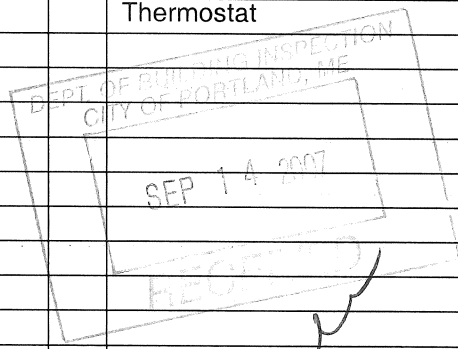 Thermostat
DEPT. OF BUILDING INSPECTION
CITY OF PORTLAND, ME
SEP 14 2007
RECEIVED